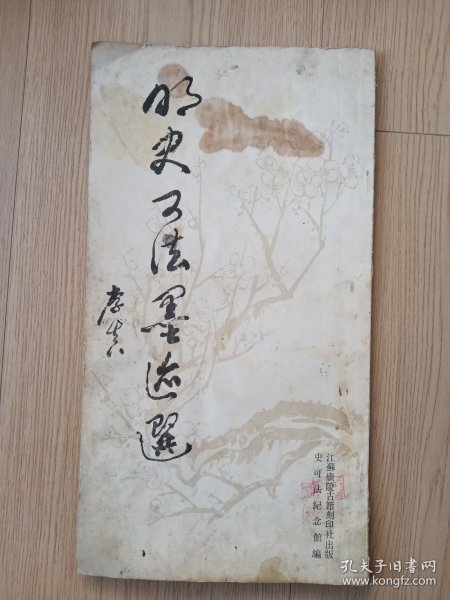 明史可法墨迹選
李真
江蘇廣陵古籍刻印社出版
史可法紀念館編
孔夫子旧书网
kongfz.com